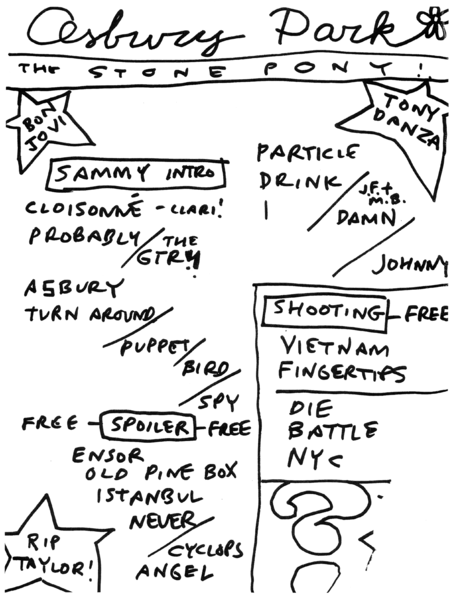 Asbury Park
THE STONE PONY!
BON
JOVI
TONY
DANZA
SAMMY INTRO
CLOISONNÉ - CLARI!
PROBABLY / THE
GTR!!
ASBURY
TURN AROUND
PUPPET /
BIRD
SPY
FREE - SPOILER - FREE
ENSOR
OLD PINE BOX
ISTANBUL
NEVER
CYCLOPS
ANGEL
RIP
TAYLOR!
PARTICLE
DRINK
J.F. + M.B.
I / DAMN
JOHNNY
SHOOTING - FREE
VIETNAM
FINGERTIPS
DIE
BATTLE
NYC
?